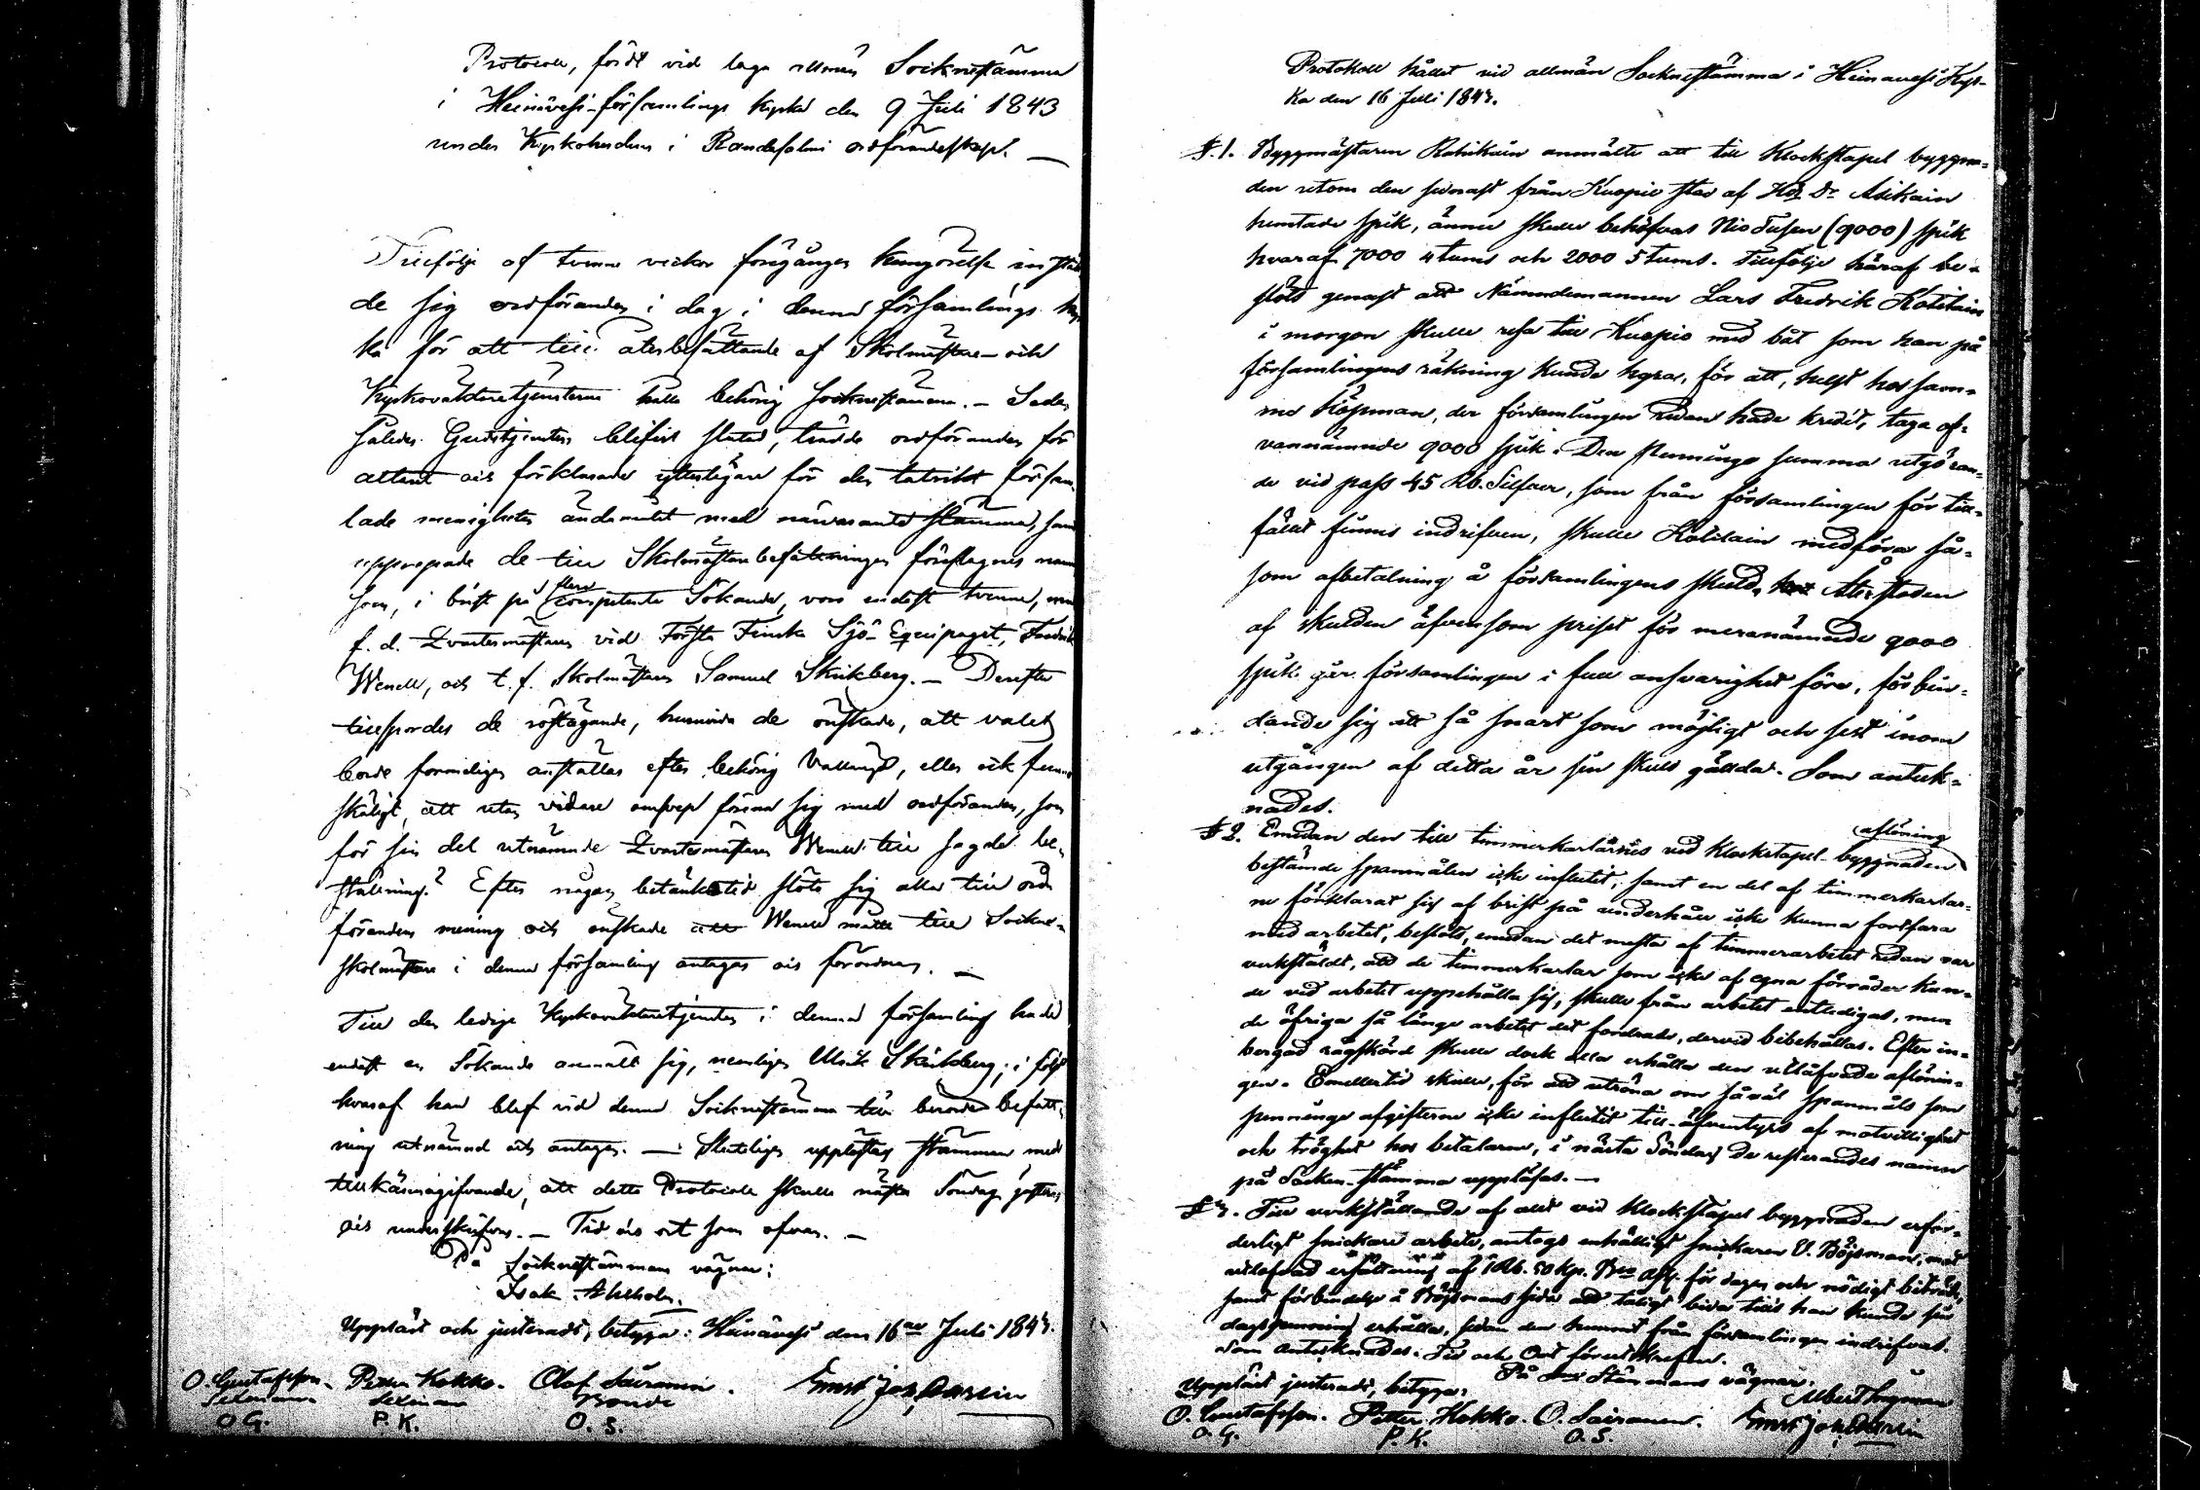 Protocoll, fördt vid laga allmän Socknestämma
i Heinävesi församlings kyrka den 9 Juli 1843
under Kyrkoherdens i Randasalmi ordförandeskap. —
Till följe af tvenne veckor föregången kungörelse instäld
de sig ordföranden i dag i denna församlings kyr
ka för att till återbesättande af Skolmästare- och
Kyrkovaktaretjensterne hålla behörig Socknestämma. — Sedan
således Gudstjensten blifvit slutad, trädde ordföranden för
altaret och förklarade ytterligare för den talrikt försam
lade menigheten ändamålet med närvarande stämma, samt
uppropade de till Skolmästarebefattningen föreslagnes namn
som, i brist på flera competenta Sökande, voro endast tvenne,
f. d. Qvartermästaren vid Första Finska Sjö-Equipaget, Fredrik
Wenell, och t. f. Skolmästaren Samuel Skrikberg. — Derefter
tillspordes de röstägande, huruvida de önskade, att valet
borde formeligen anställas efter behörig Vallängd, eller ock funno
skäligt, att utan vidare omsvep förena sig med ordföranden, som
för sin del utnämnde Qvartermästaren Wenell till sagde be-
ställning? Efter någon betänketid slöto sig alla till ord
förandens mening och önskade att Wenell måtte till Sockne-
skolmästare i denna församling antagas och förordnas. —
Till den lediga Kyrkovaktaretjensten i denna församling hade
endast en Sökande anmält sig, nemligen Ulrik Skrikberg; i följd
hvaraf han blef vid denna Socknestämma till berörde befatt-
ning utnämnd och antagen. — Slutligen upplöstes stämman med
tillkännagifvande, att detta Protocoll skulle nästa Söndag justeras
och underskrifvas. — Tid och ort som ofvan. —
På Socknestämmans vägnar:
Isak
Uppläst och justeradt, betyga: Heinävesi den 16de Juli 1843.
O. Gustafsson. Petter Kokko. Olof Sairanen. Ernst Joh.
O. G. P. K. Bonde O. S.
Protokoll hållet vid allmän Socknestämma i Heinävesi Kyr-
ka den 16 Juli 1843.
§. 1. Byggmästaren anmälte att till Klockstapel byggna-
den utom den senast från Kuopio stad af Asikain
hemtade spik, ännu skulle behöfvas Nio Tusen (9000) spik
hvaraf 7000 4 tums och 2000 5 tums. Tillfölje häraf be-
slöts genast att Nämndemannen Lars Fredrik Kotilain
i morgon skulle resa till Kuopio med båt som han på
församlingens räkning kunde hyra, för att, helst hos sam-
ma Köpman, der församlingen redan hade kredit, taga of-
vannämnde 9000 spik. Den Pennings summa utgöran-
de vid pass 45 Rb. Silfver, som från församlingen för till-
fället finnes indrifven, skulle Kotilain medföra så-
som afbetalning å församlingens skuld. Återstoden
af skulden äfvensom priset för mernämnde 9000
spik går församlingen i full ansvarighet före, förbin-
dande sig att så snart som möjligt och sist inom
utgången af detta år sin skuld gälda. Som anteck-
nades.
§ 2. Emedan den till timmerkarlarnes vid Klockstapel-byggnaden aflöning
bestämde spannmålen icke influtit, samt en del af timmerkarlar-
ne förklarat sig af brist på underhåll icke kunna fortfara
med arbetet, beslöts, emedan det mesta af timmerarbetet redan var
verkstäldt, att de timmerkarlar som icke af egna förråder kun-
de vid arbetet uppehålla sig, skulle från arbetet entledigas, men
de öfriga så länge arbetet det fordrade, dervid bibehållas. Efter in-
bergad rågskörd skulle dock alla erhålla den utlofvade aflönin-
gen. Emellertid skulle, för att utröna om såväl spannmåls som
pennings afgifterne icke influtit till äfventyrs af motvillighet
och tröghet hos betalarne, i nästa Söndag De resterandes namn
på Socken-stämma uppläsas. —
§ 3. Till verkställande af allt vid Klockstapel byggnaden erfor-
derligt snickare arbete, antogs enhälligt snickaren U. Böjsman, mot
utlofvad ersättning af 1 Rb. 50 kp. Bco Ass. för dagen och nödigt biträde,
samt förbindelse å Böjsmans sida att tåligt bida tills han kunde sin
dagspenning erhålla, sedan den hunnit från församlingen indrifvas.
Som antecknades. Tid och Ort förutskrefven.
På Stämmans vägnar:
Uppläst justeradt, betyga:
O. Gustafsson. Petter Kokko. O. Sairanen. Ernst Joh.
O. G. P. K. O. S.